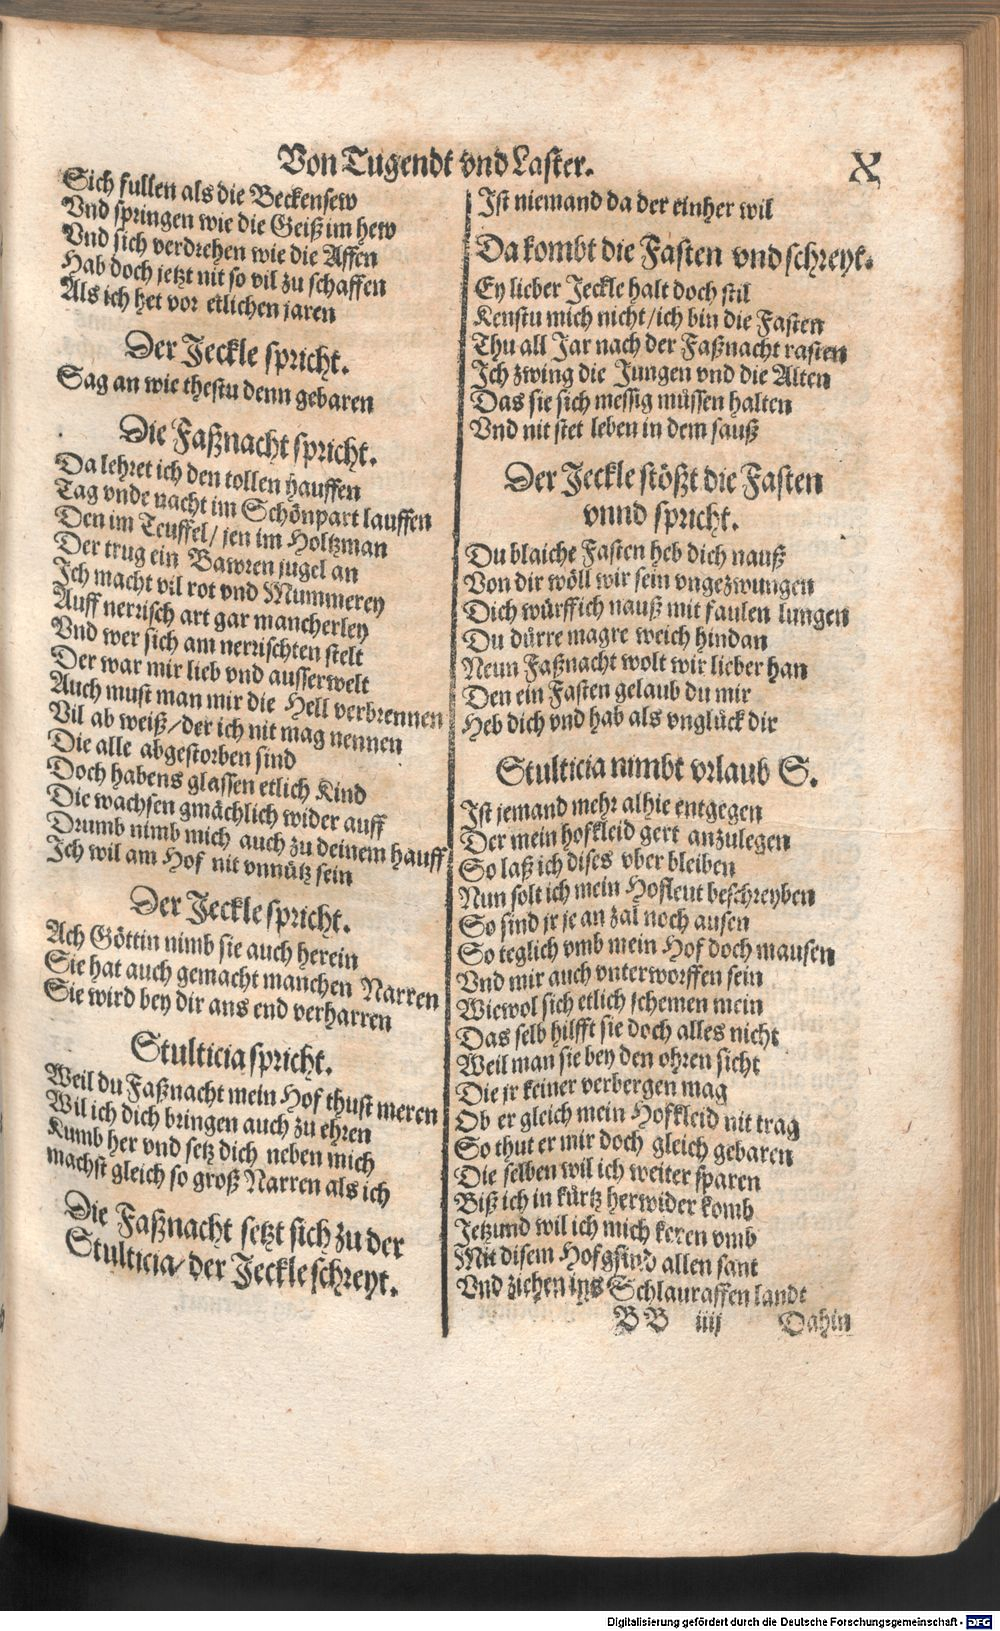 Von Tugendt vnd Laster. X
Sich fullen als die Beckensew
Vnd springen wie die Geiß im hew
Vnd sich verdrehen wie die Affen
Hab doch jetzt nit so vil zu schaffen
Als ich het vor etlichen jaren
Der Jeckle spricht.
Sag an wie thestu denn gebaren
Die Faßnacht spricht.
Da lehret ich den tollen hauffen
Tag vnde nacht im Schönpart lauffen
Den im Teuffel/ jen im Holtzman
Der trug ein Bawren jugel an
Ich macht vil rot vnd Mummerey
Auff nerrisch art gar mancherley
Vnd wer sich am nerrischten stelt
Der war mir lieb vnd ausserwelt
Auch must man mir die Hell verbrennen
Vil ab weiß/der ich nit mag nennen
Die alle abgestorben sind
Doch habens glassen etlich Kind
Die wachsen gmächlich wider auff
Drumb nimb mich auch zu deinem hauff
Ich wil am Hof nit vnnütz sein
Der Jeckle spricht.
Ach Göttin nimb sie auch herein
Sie hat auch gemacht manchen Narren
Sie wird bey dir ans end verharren
Stulticia spricht.
Weil du Faßnacht mein Hof thust meren
Wil ich dich bringen auch zu ehren
Kumb her vnd setz dich neben mich
machst gleich so groß Narren als ich
Die Faßnacht setzt sich zu der
Stulticia/ der Jeckle schreyt.
Ist niemand da der einher wil
Da kombt die Fasten vnd schreyt.
Ey lieber Jeckle halt doch stil
Kenstu mich nicht/ich bin die Fasten
Thu all Jar nach der Faßnacht rasten
Ich zwing die Jungen vnd die Alten
Das sie sich messig müssen halten
Vnd nit stet leben in dem sauß
Der Jeckle stößzt die Fasten
vnnd spricht.
Du blaiche Fasten heb dich nauß
Von dir wöll wir sein vngezwungen
Dich würff ich nauß mit faulen lungen
Du dürre magre weich hindan
Neun Faßnacht wolt wir lieber han
Den ein Fasten gelaub du mir
Heb dich vnd hab als vnglück dir
Stulticia nimbt vrlaub S.
Ist jemand mehr alhie entgegen
Der mein hofkleid gert anzulegen
So laß ich dises vber bleiben
Nun solt ich mein Hofleut beschreyben
So sind jr je an zal noch ausen
So teglich vmb mein Hof doch mausen
Vnd mir auch vnterworffen sein
Wiewol sich etlich schemen mein
Das selb hilfft sie doch alles nicht
Weil man sie bey den ohren sicht
Die jr keiner verbergen mag
Ob er gleich mein Hofkleid nit trag
So thut er mir doch gleich gebaren
Die selben wil ich weiter sparen
Biß ich in kürtz herwider komb
Jetzund wil ich mich keren vmb
Mit disem Hofgsind allen sant
Vnd ziehen ins Schlauraffen landt
BB iiij Dahin
Digitalisierung gefördert durch die Deutsche Forschungsgemeinschaft - DFG